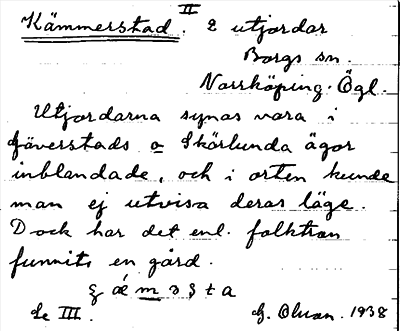 II
Kämmerstad. 2 utjordar
Borgs sn.
Norrköping. Ögl.
Utjordarna synas vara i
Gäverstads o Skörlunda ägor
inblandade, och i orten kunde
man ej utvisa deras läge.
Dock har det enl. folktron
funnits en gård.
Se III.
G. Olson. 1938